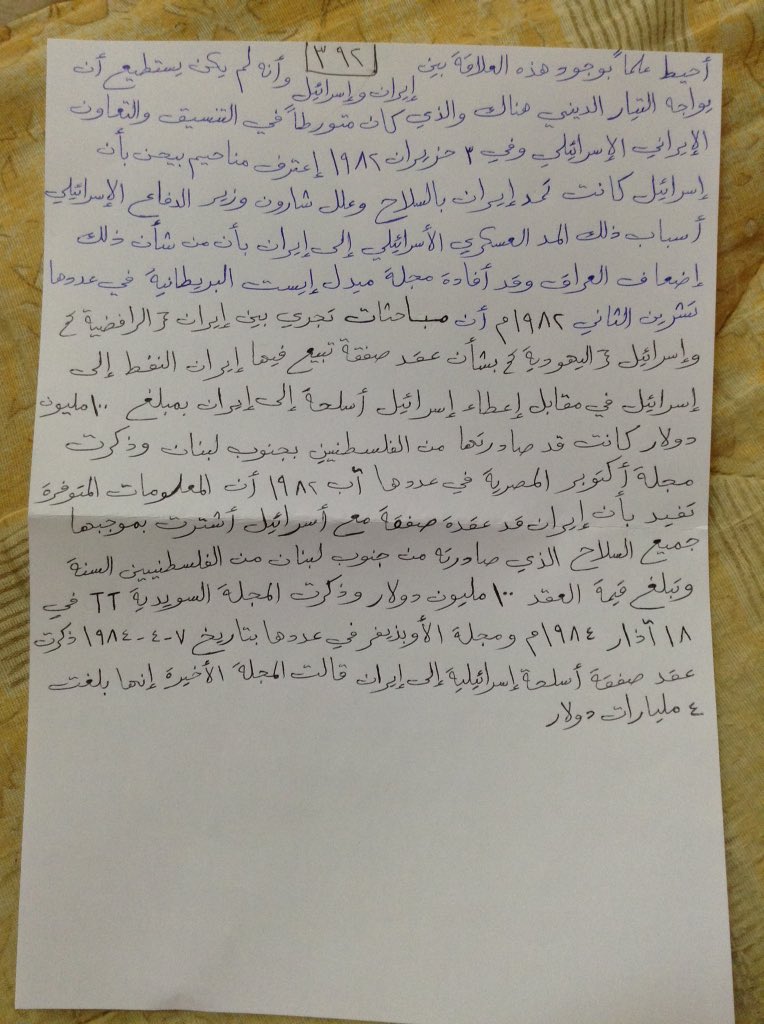 ٣٩٢
أحيط علماً بوجود هذه العلاقة بين إيران وإسرائيل وأنه لم يكن يستطيع أن
يواجه التيار الديني هناك والذي كان متورطاً في التنسيق والتعاون
الإيراني الإسرائيلي وفي ٣ حزيران ١٩٨٢ إعترف مناحيم بيجن بأن
إسرائيل كانت تمد إيران بالسلاح وعلل شارون وزير الدفاع الإسرائيلي
أسباب ذلك المد العسكري الأسرائيلي إلى إيران بأن من شأن ذلك
إضعاف العراق وقد أفادة مجلة ميدل إيست البريطانية في عددها
تشرين الثاني ١٩٨٢م أن مباحثات تجري بين إيران { الرافضية }
وإسرائيل { اليهودية } بشأن عقد صفقة تبيع فيها إيران النفط إلى
إسرائيل في مقابل إعطاء إسرائيل أسلحة إلى إيران بمبلغ ١٠٠ مليون
دولار كانت قد صادرتها من الفلسطنيين بجنوب لبنان وذكرت
مجلة أكتوبر المصرية في عددها آب ١٩٨٢ أن المعلومات المتوفرة
تفيد بأن إيران قد عقدة صفقة مع أسرائيل أشترت بموجبها
جميع السلاح الذي صادرته من جنوب لبنان من الفلسطنيين السنة
وتبلغ قيمة العقد ١٠٠ مليون دولار وذكرت المجلة السويدية TT في
١٨ آذار ١٩٨٤م ومجلة الأوبزيفر في عددها بتاريخ ٧-٤-١٩٨٤ ذكرت
عقد صفقة أسلحة إسرائيلية إلى إيران قالت المجلة الأخيرة إنها بلغت
٤ مليارات دولار